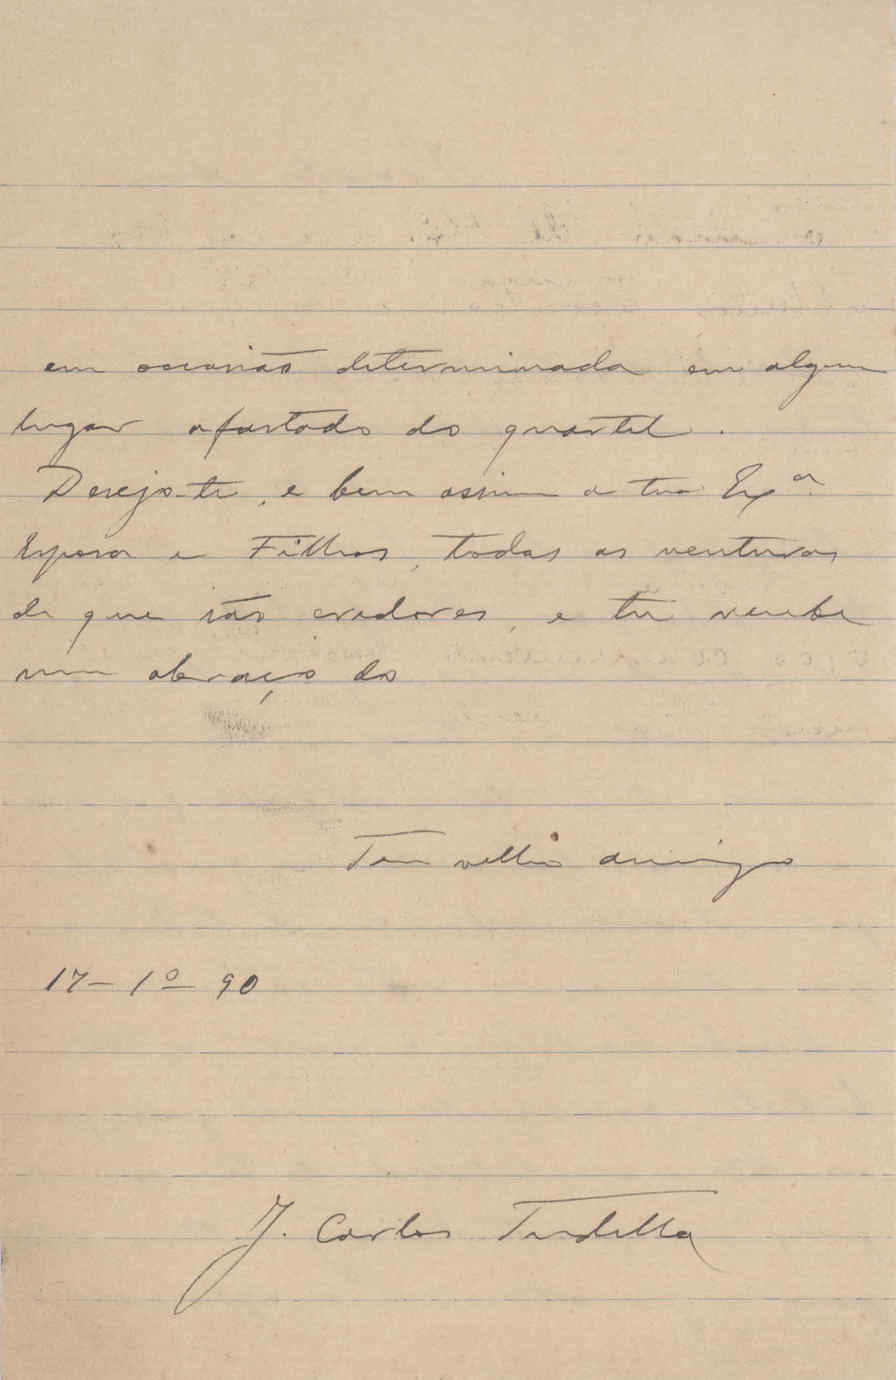 em occasião determinada em algum
lugar afastado do quartel.
Desejo-te, e bem assim a tua Exª.
Esposa e Filhos, todas as venturas
de que são credores, e tu recebe
um abraço do
Teu velho amigo
17-1º-90
J. Carlos